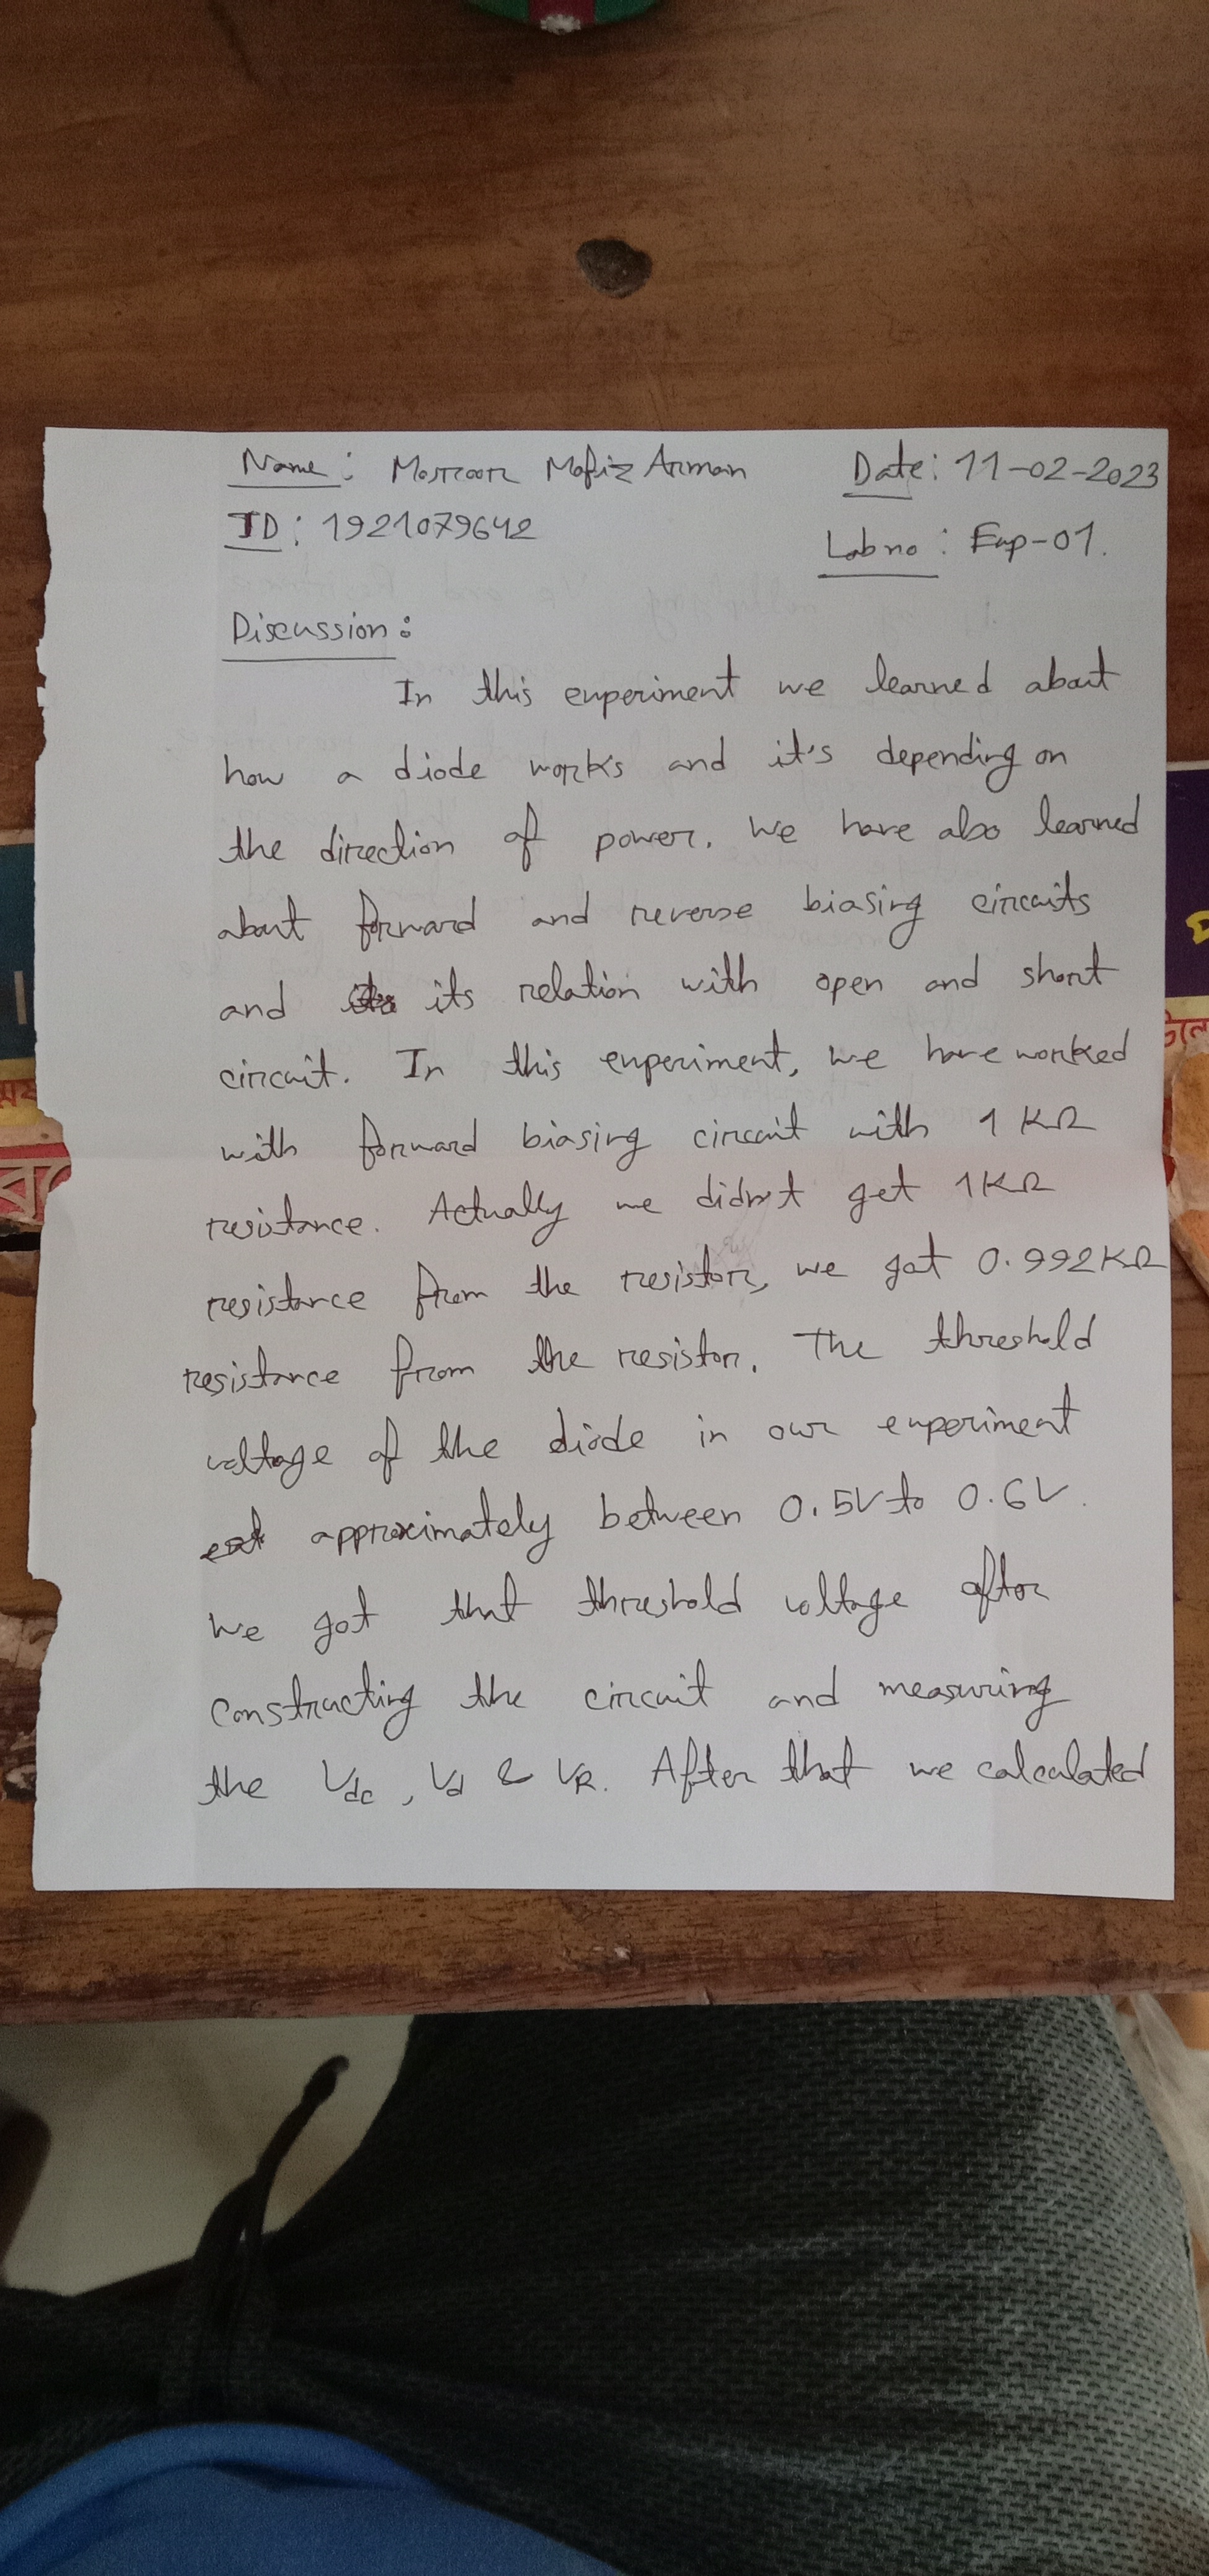 Name: Masroor Mofiz Arman Date: 11-02-2023
ID: 1921079642
Lab no: Exp-01.
Discussion:
In this experiment we learned about
how a diode works and it's depending on
the direction of power. We have also learned
about forward and reverse biasing circuits
and its relation with open and short
circuit. In this experiment, we have worked
with forward biasing circuit with 1 KΩ
resistance. Actually we didn't get 1KΩ
resistance from the resistor, we got 0.992KΩ
resistance from the resistor. The threshold
voltage of the diode in our experiment
approximately between 0.5V to 0.6V.
We got that threshold voltage after
constructing the circuit and measuring
the Vdc, Vd & VR. After that we calculated